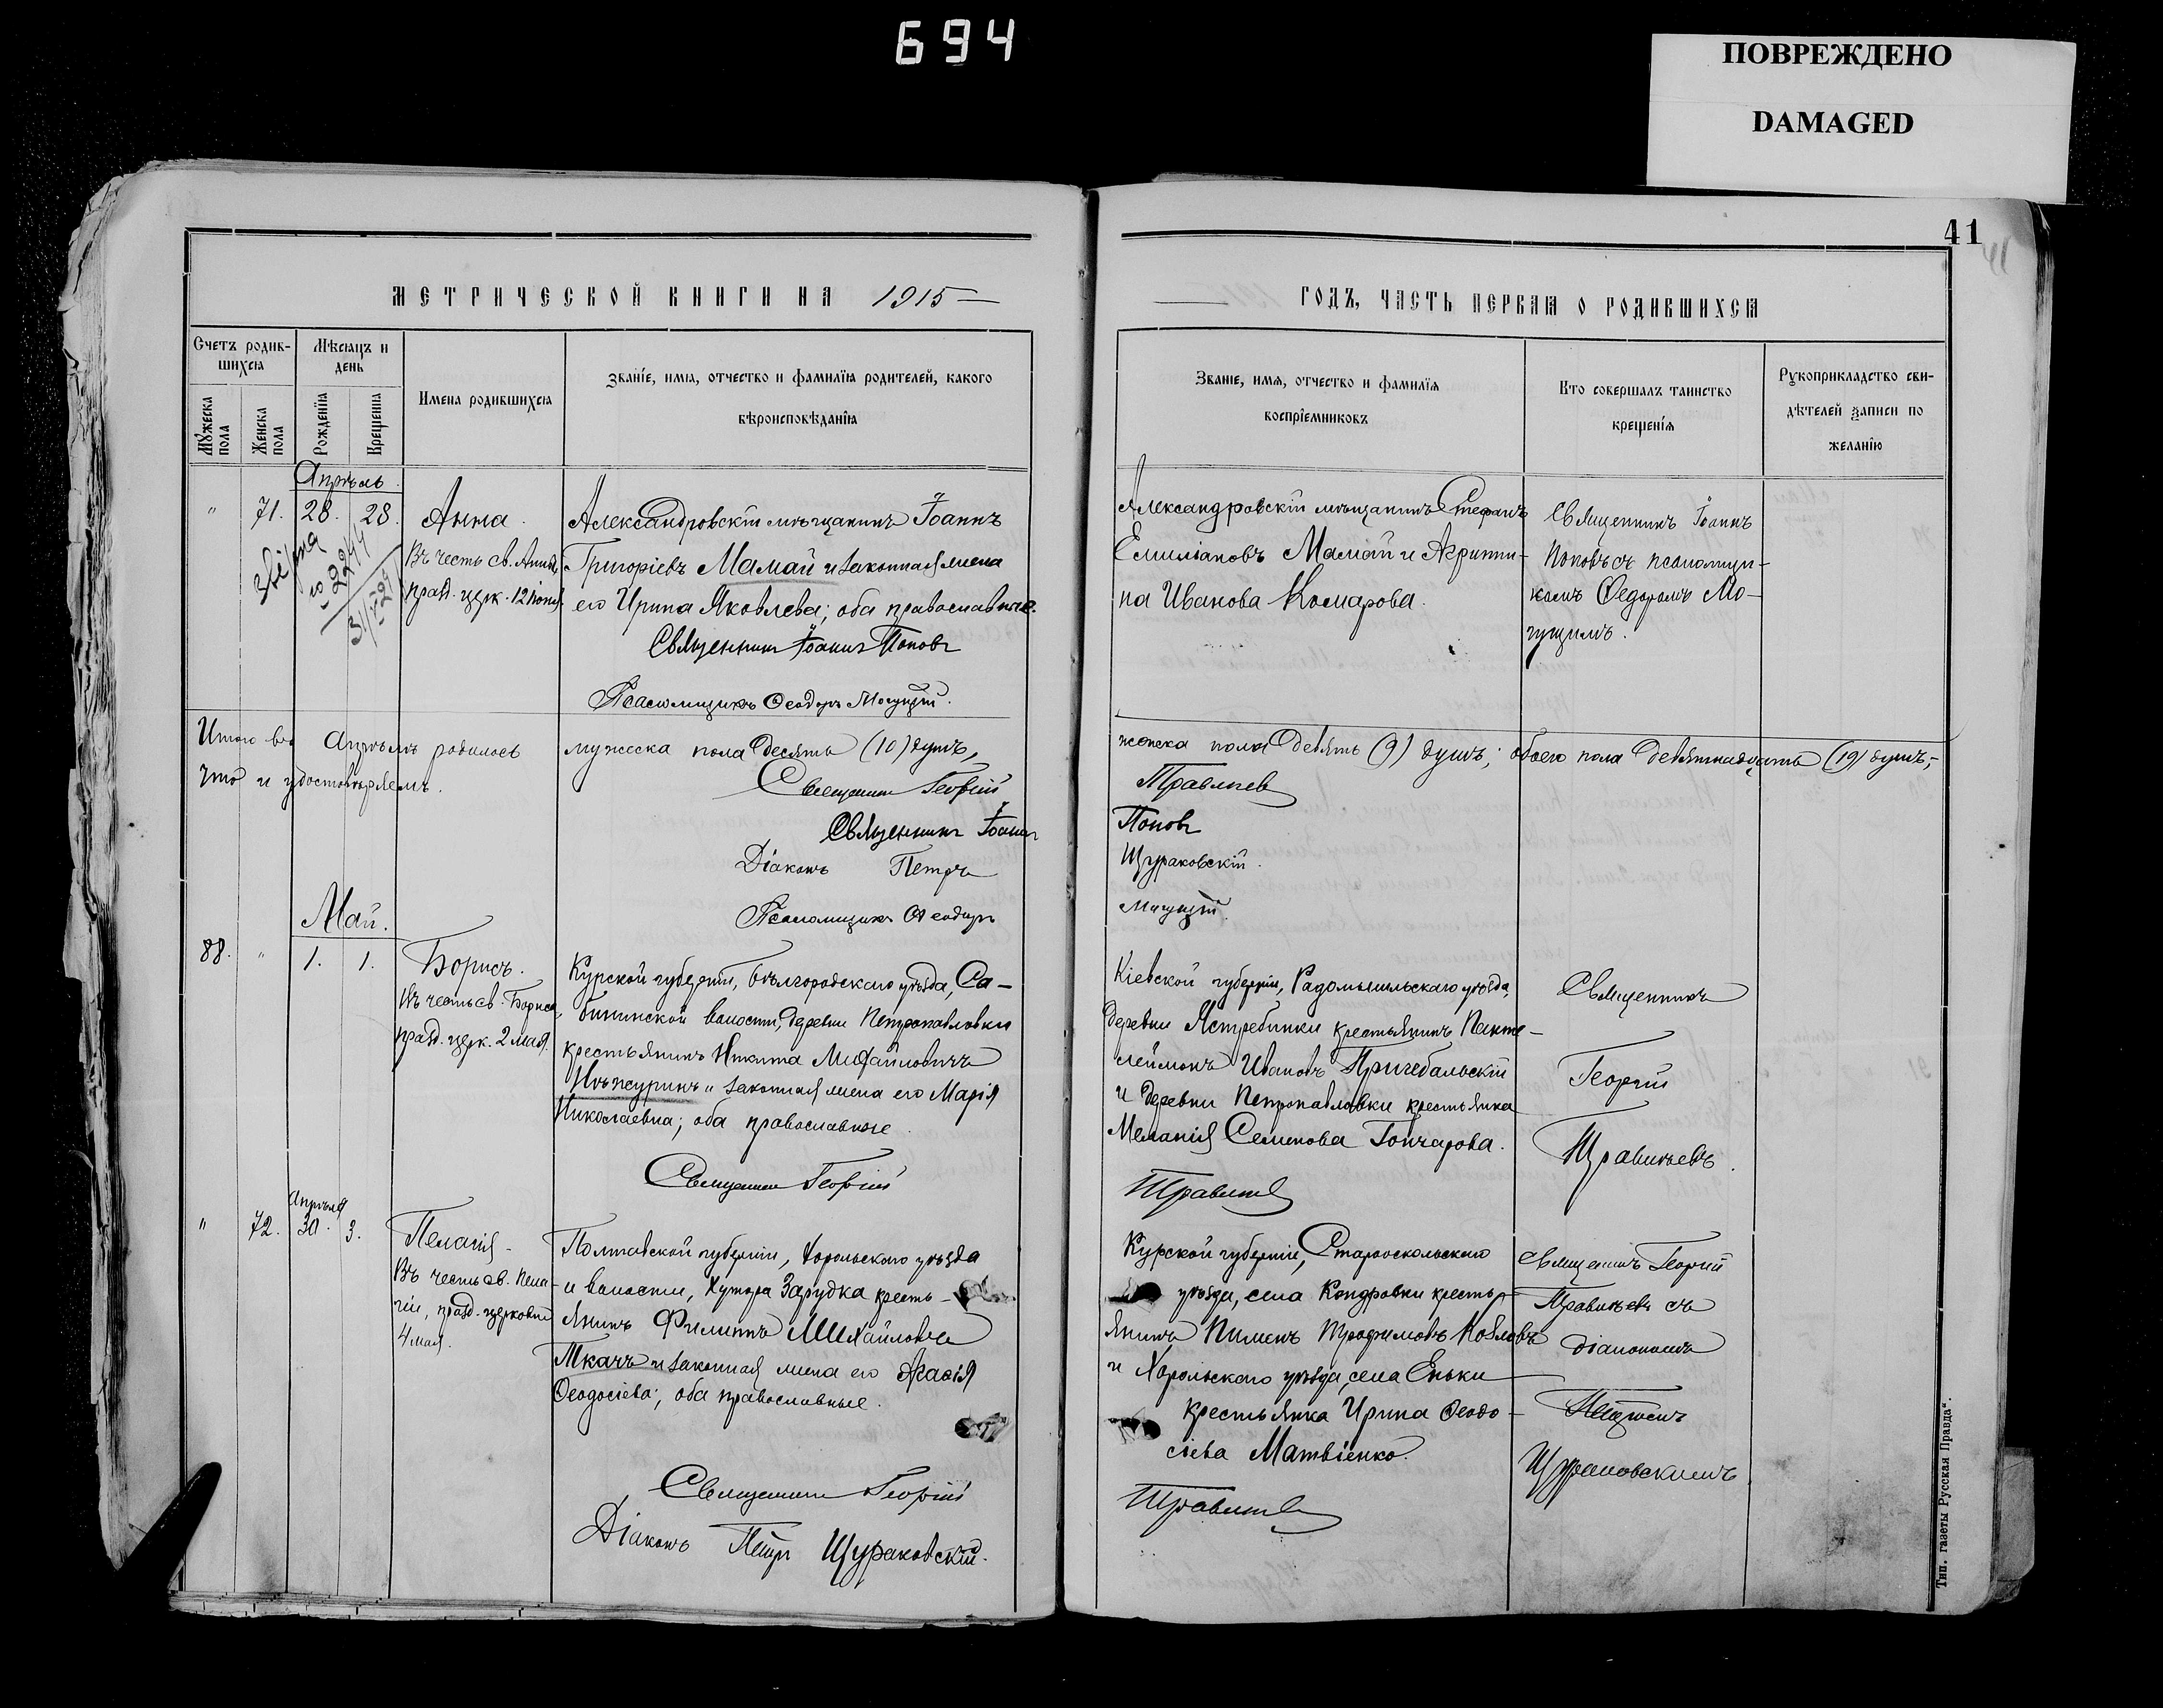 694
ПОВРЕЖДЕНО
DAMAGED
41
41
МЕТРИЧЕСКОЙ КНИГИ НА 1915 —
Счетъ родив-
шихся
Мѣсяцъ и
день
Имена родившихся
Званіе, имя, отчество и фамилія родителей, какого
вѣроисповѣданія
Мужеска пола
Женска пола
Рожденія
Крещенія
Апрѣль
" 71. 28. 28. Анна.
Въ честь св. Анны,
празд. церк. 12 іюня.
31/I-27
Александровскій мѣщанинъ Іоаннъ
Григоріевъ Мамай и законная жена
его Ирина Яковлева; оба православные.
Священникъ Іоаннъ Поповъ
Псаломщикъ Ѳеодоръ Могущій.
Итого въ Апрѣлѣ родилось мужеска пола десять (10) душъ,
что и удостовѣряемъ.
Священникъ Георгій
Священникъ Іоаннъ
Діаконъ Петръ
Псаломщикъ Ѳеодоръ
Май.
88. " 1. 1. Борисъ.
Въ честь св. Бориса,
празд. церк. 2 мая.
Курской губерніи, Бѣлгородскаго уѣзда, Са-
бынинской волости, деревни Петропавловки
крестьянинъ Никита Михайловичъ
и законная жена его Марія
Николаевна; оба православные.
Священникъ Георгій
Апрѣля
" 72. 30. 3. Пелагія.
Въ честь св. Пела-
гіи, празд. церковью
4 мая.
Полтавской губерніи, Хорольскаго уѣзда
и волости, хутора Зарудка кресть-
янинъ Филиппъ Михайловъ
Ткачъ и законная жена его Агаѳія
Ѳеодосіева; оба православные.
Священникъ Георгій
Діаконъ Петръ Щураковскій.
ГОДЪ, ЧАСТЬ ПЕРВАЯ О РОДИВШИХСЯ
Званіе, имя, отчество и фамилія
воспріемниковъ
Кто совершалъ таинство
крещенія
Рукоприкладство сви-
дѣтелей записи по
желанію
Александровскій мѣщанинъ Стефанъ
Емиліановъ Мамай и Агриппи-
на Иванова Комарова.
Священникъ Іоаннъ
Поповъ съ псаломщи-
комъ Ѳедоромъ Мо-
гущимъ.
женска пола девять (9) душъ; обоего пола девятнадцать (19) душъ,-
Правильевъ
Поповъ
Щураковскій.
Могущій.
Кіевской губерніи, Радомысльскаго уѣзда,
деревни Ястребинки крестьянинъ Панте-
леймонъ Ивановъ
и деревни Петропавловки крестьянка
Меланія Семенова Гончарова.
Священникъ
Георгій
Курской губерніи, Старооскольскаго
уѣзда, села Кондровки кресть-
янинъ Пименъ Трофимовъ Козловъ
и Хорольскаго уѣзда, села Еньки
крестьянка Ирина Ѳеодо-
сіева Матвіенко.
Священникъ Георгій
съ
діакономъ
Петромъ
Щураковскимъ.
Тип. газеты „Русская Правда“.